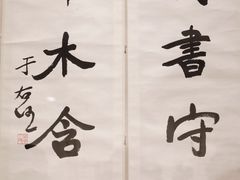 書守
木含
于右任